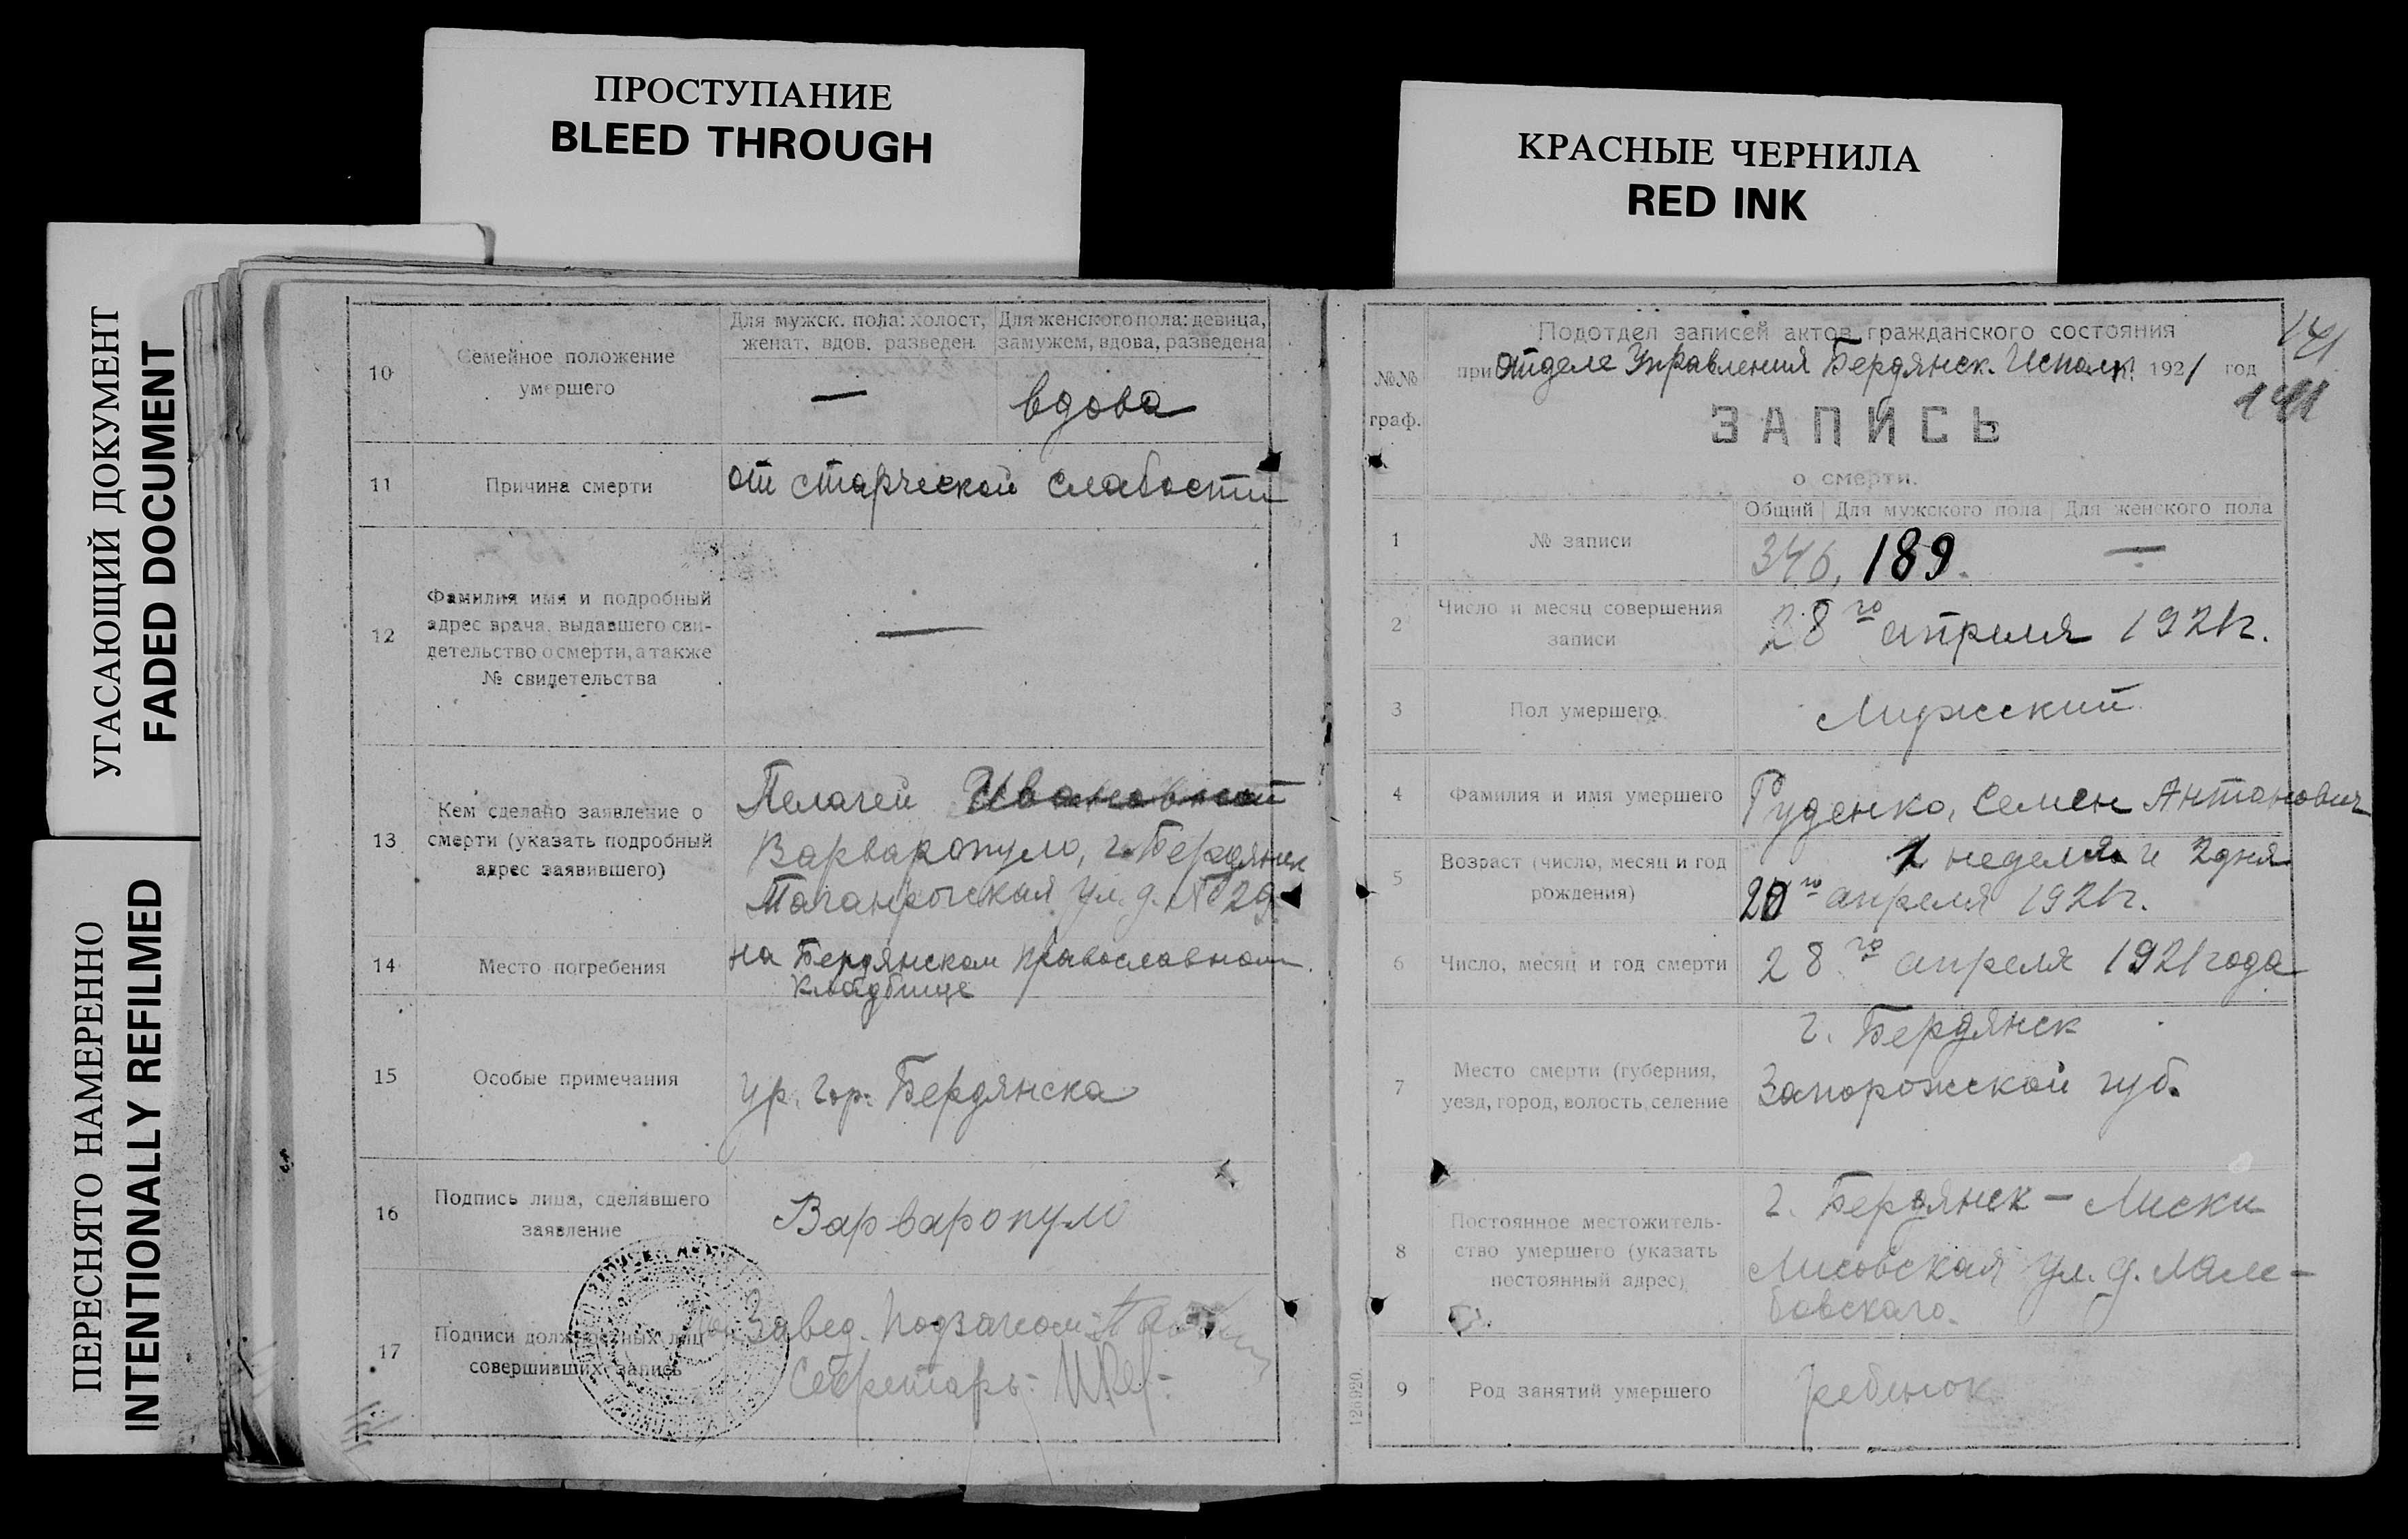 ПРОСТУПАНИЕ
BLEED THROUGH
КРАСНЫЕ ЧЕРНИЛА
RED INK
УГАСАЮЩИЙ ДОКУМЕНТ
FADED DOCUMENT
ПЕРЕСНЯТО НАМЕРЕННО
INTENTIONALLY REFILMED
10
Семейное положение
умершего
Для мужск. пола: холост,
женат, вдов, разведен.
Для женского пола: девица,
замужем, вдова, разведена
—
вдова
11
Причина смерти
от старческой слабости
12
Фамилия имя и подробный
адрес врача, выдавшего сви-
детельство о смерти, а также
№ свидетельства
—
13
Кем сделано заявление о
смерти (указать подробный
адрес заявившего)
Пелагей Ивановной
Варваропуло, г. Бердянск
Таганрогская ул. д. № 29
14
Место погребения
на Бердянском православном
кладбище
15
Особые примечания
ур. гор. Бердянска
16
Подпись лица, сделавшего
заявление
Варваропуло
17
Подписи должностных лиц
совершивших запись
Завед. подзагсом
Секретарь:
№№
граф.
Подотдел записей актов гражданского состояния
при отделе Управления Бердянск. Исполк. 1921 год
141
141
ЗАПИСЬ
о смерти.
Общий Для мужского пола Для женского пола
1
№ записи
346. 189. —
2
Число и месяц совершения
записи
28го апреля 1921г.
3
Пол умершего
Мужский
4
Фамилия и имя умершего
Руденко, Семен Антонович
5
Возраст (число, месяц и год
рождения)
1 неделя и 2 дня
20го апреля 1921г.
6
Число, месяц и год смерти
28го апреля 1921 года
7
Место смерти (губерния,
уезд, город, волость, селение
г. Бердянск
Запорожской губ.
8
Постоянное местожитель-
ство умершего (указать
постоянный адрес)
г. Бердянск — Лиски
Лисовская ул. д.
бовского.
9
Род занятий умершего
ребенок
126920